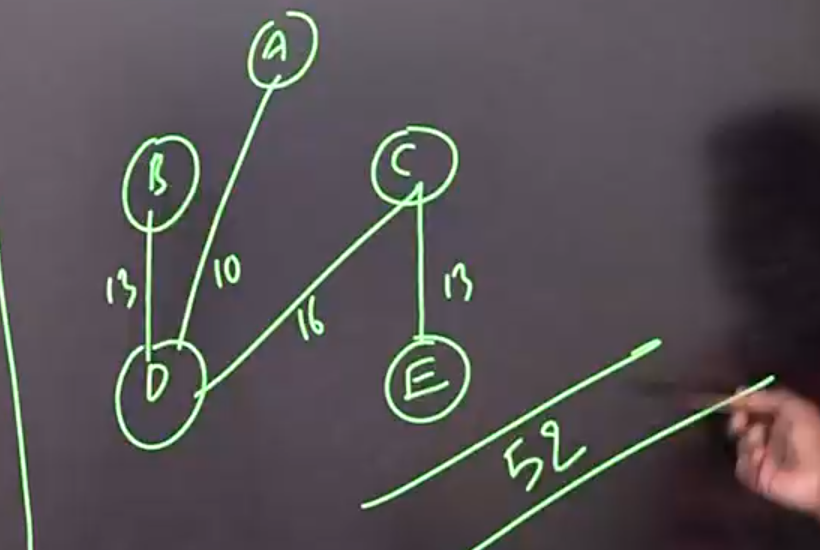 A
B
C
13
10
16
13
D
E
52